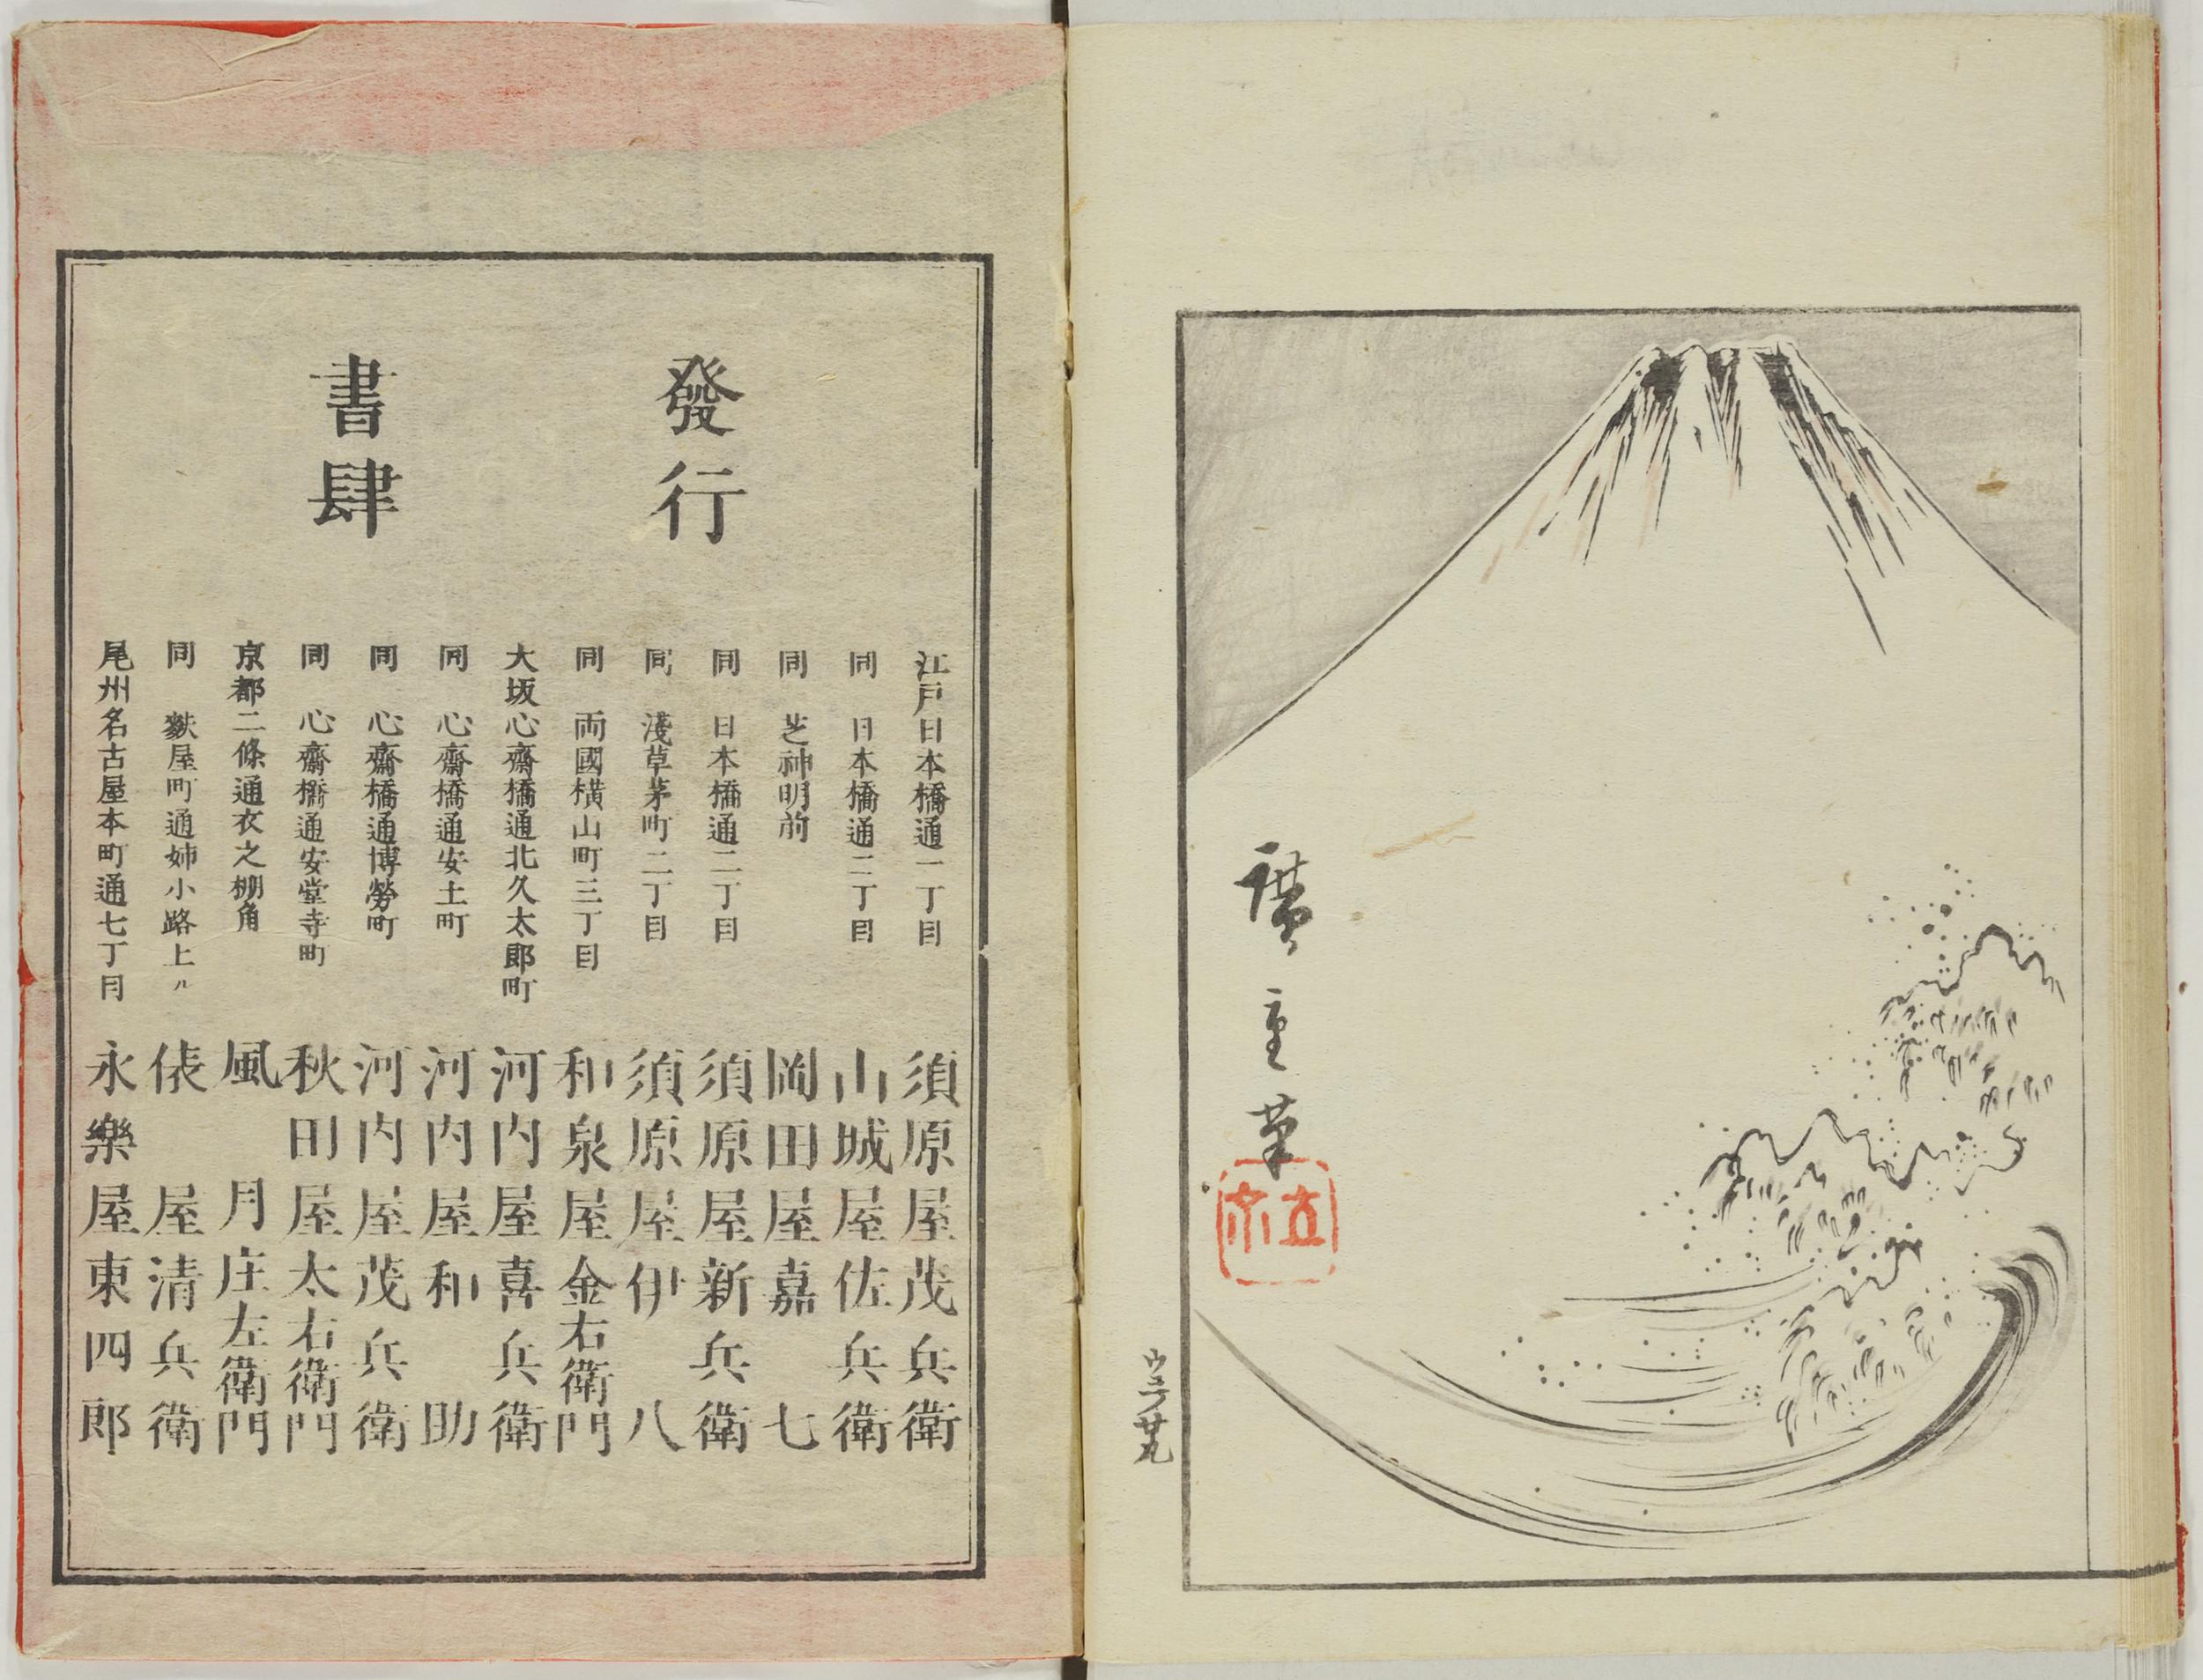 廣重筆
立斎
ウラ廿九
發行
書肆
江戸日本橋通一丁目 須原屋茂兵衛
同 日本橋通二丁目 山城屋佐兵衛
同 芝神明前 岡田屋嘉七
同 日本橋通二丁目 須原屋新兵衛
同 淺草茅町二丁目 須原屋伊八
同 両國横山町三丁目 和泉屋金右衛門
大坂心齋橋通北久太郎町 河内屋喜兵衛
同 心齋橋通安土町 河内屋和助
同 心齋橋通博勞町 河内屋茂兵衛
同 心齋橋通安堂寺町 秋田屋太右衛門
京都二條通衣之棚角 風月庄左衛門
同 麩屋町通姉小路上ル 俵屋清兵衛
尾州名古屋本町通七丁目 永樂屋東四郎